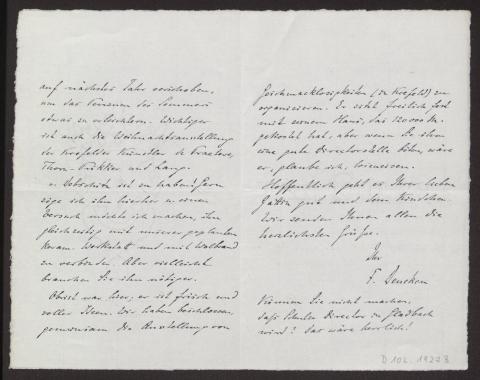 auf nächstes Jahr verschoben,
um das Können des Sommers
etwas zu erleichtern. Wichtiger
ist auch die Weihnachtsausstellung
der Krefelder Künstler de Praetere,
Thorn-Prikker und Lang.
v. Debschitz ist zu haben! Gern
zöge ich ihn hierher u. einen
Versuch möchte ich machen, ihn
gleichzeitig mit unserer geplanten
keram. Werkstatt und mit
zu verbinden. Aber vielleicht
brauchen Sie ihn nötiger.
Obrist war hier; er ist frisch und
voller Ideen. Wir haben beschlossen,
gemeinsam die Ausstellung von
Geschmacklosigkeiten (in Krefeld) zu
organisieren. Er sitzt freilich fest
mit seinem Haus, das 120000 M.
gekostet hat, aber wenn Sie ihm
eine gute Directorstelle böten, wäre
er, glaube ich,
Hoffentlich geht es Ihrer lieben
Gattin gut und dem Kindchen.
Wir senden Ihnen allen die
herzlichsten Grüße.
Ihr
F. Deneken
Können Sie nicht machen,
daß Schulze Director in Gladbach
wird? Das wäre herrlich!
D 102. 19223